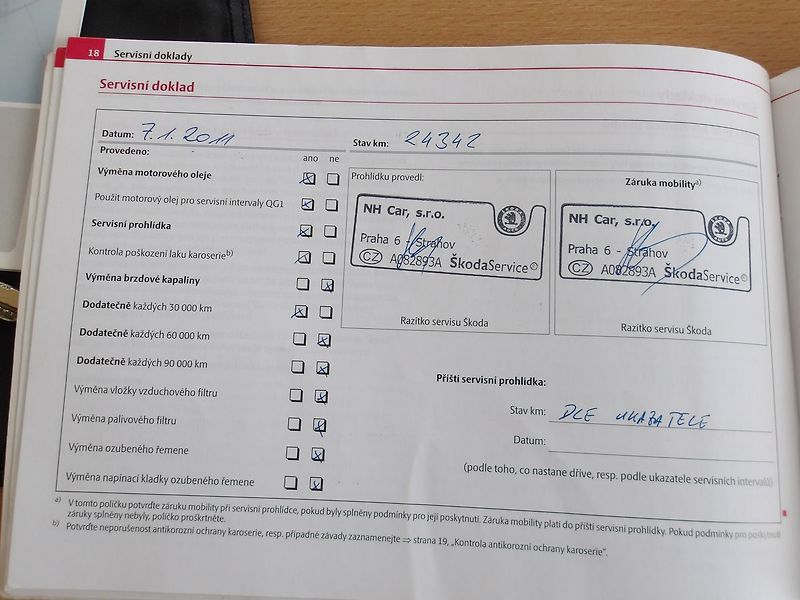 18 Servisní doklady
Servisní doklad
Datum: 7.1.2011 Stav km: 24342
Provedeno: ano ne
Výměna motorového oleje
Použit motorový olej pro servisní intervaly QG1
Servisní prohlídka
Kontrola poškození laku karoserie b)
Výměna brzdové kapaliny
Dodatečně každých 30 000 km
Dodatečně každých 60 000 km
Dodatečně každých 90 000 km
Výměna vložky vzduchového filtru
Výměna palivového filtru
Výměna ozubeného řemene
Výměna napínací kladky ozubeného řemene
Prohlídku provedl:
NH Car, s.r.o.
Praha 6 - Strahov
CZ A082893A ŠkodaService©
Razítko servisu Škoda
Záruka mobility a)
NH Car, s.r.o.
Praha 6 - Strahov
CZ A082893A ŠkodaService©
Razítko servisu Škoda
Příští servisní prohlídka:
Stav km: DLE UKAZATELE
Datum:
(podle toho, co nastane dříve, resp. podle ukazatele servisních intervalů)
a) V tomto políčku potvrďte záruku mobility při servisní prohlídce, pokud byly splněny podmínky pro její poskytnutí. Záruka mobility platí do příští servisní prohlídky. Pokud podmínky pro poskytnutí
záruky splněny nebyly, políčko proškrtněte.
b) Potvrďte neporušenost antikorozní ochrany karoserie, resp. případné závady zaznamenejte ⇒ strana 19, „Kontrola antikorozní ochrany karoserie".